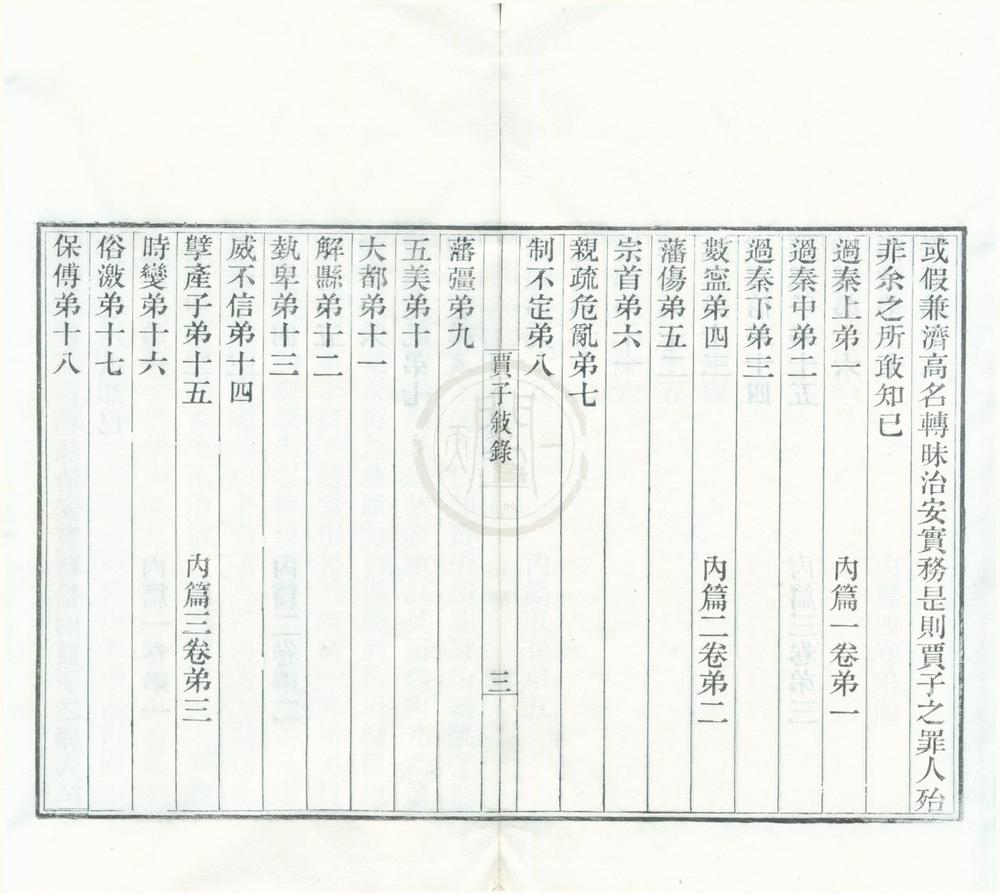 或假兼濟高名轉昧治安實務是則賈子之罪人殆
非余之所敢知已
過秦上弟一 內篇一卷弟一
過秦中弟二
過秦下弟三
數寍弟四 內篇二卷弟二
藩傷弟五
宗首弟六
親疏危亂弟七
制不定弟八
賈子敍錄 三
藩彊弟九
五美弟十
大都弟十一
解縣弟十二
埶卑弟十三
威不信弟十四
孽產子弟十五 內篇三卷弟三
時變弟十六
俗激弟十七
保傅弟十八